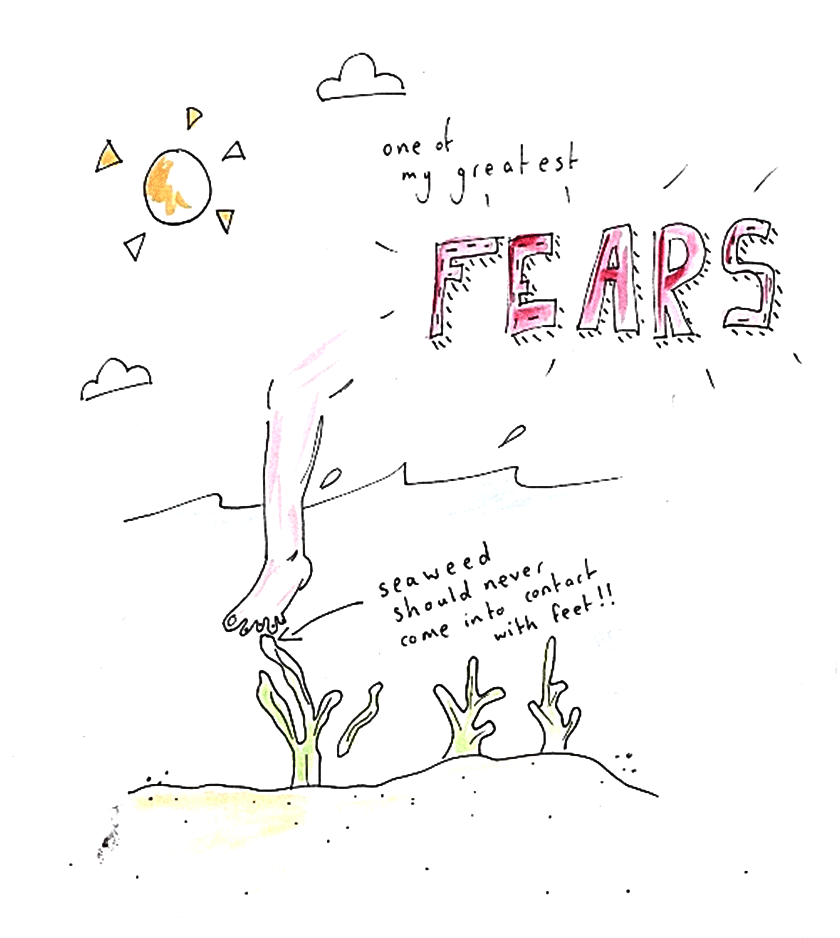 one of
my greatest
FEARS
seaweed
should never
come into contact
with feet!!